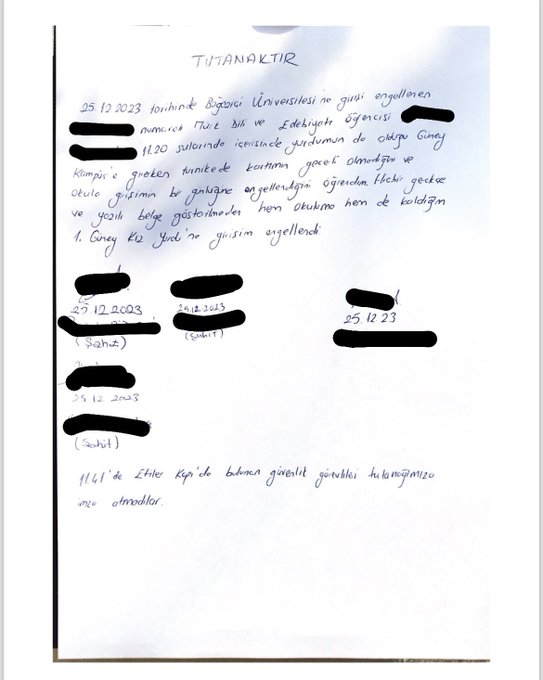 TUTANAKTIR
25.12.2023 tarihinde Boğaziçi Üniversitesi'ne girişi engellenen
numaralı Türk Dili ve Edebiyatı Öğrencisi
11.20 sularında içerisinde yurdumun da olduğu Güney
Kampüs'e girerken turnikede kartımın geçerli olmadığını ve
okula girişimin bir günlüğüne engellendiğini öğrendim. Hiçbir gerekçe
ve yazılı belge gösterilmeden hem okuluma hem de kaldığım
1. Güney Kız Yurdu'na girişim engellendi.
25.12.2023 25.12.2023 25.12.23
(Şahit) (Şahit)
25.12.2023
(Şahit)
11.41'de Etiler Kapı'da bulunan güvenlik görevlileri tutanağımıza
imza atmadılar.